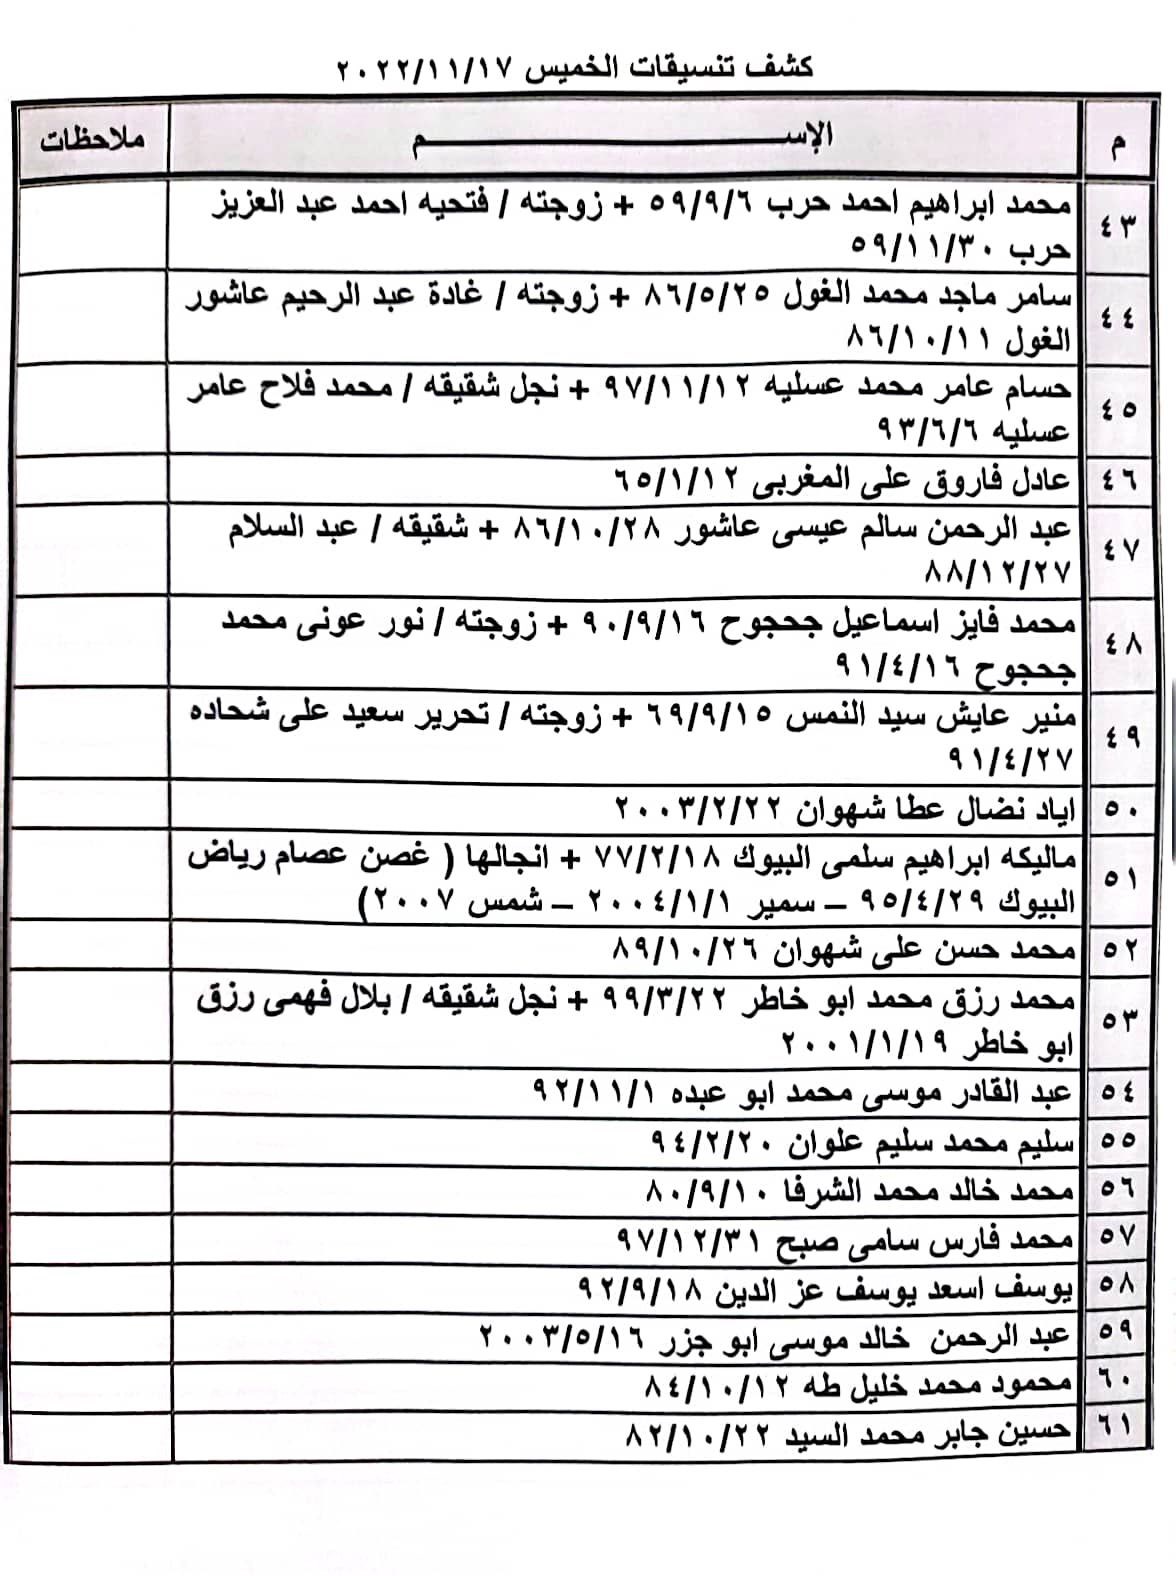 كشف تنسيقات الخميس ٢٠٢٢/١١/١٧
م الإســـــــــم ملاحظات
٤٣ محمد ابراهيم احمد حرب ٥٩/٩/٦ + زوجته / فتحيه احمد عبد العزيز
حرب ٥٩/١١/٣٠
٤٤ سامر ماجد محمد الغول ٨٦/٥/٢٥ + زوجته / غادة عبد الرحيم عاشور
الغول ٨٦/١٠/١١
٤٥ حسام عامر محمد عسليه ٩٧/١١/١٢ + نجل شقيقه / محمد فلاح عامر
عسليه ٩٣/٦/٦
٤٦ عادل فاروق على المغربى ٦٥/١/١٢
٤٧ عبد الرحمن سالم عيسى عاشور ٨٦/١٠/٢٨ + شقيقه / عبد السلام
٨٨/١٢/٢٧
٤٨ محمد فايز اسماعيل جحجوح ٩٠/٩/١٦ + زوجته / نور عونى محمد
جحجوح ٩١/٤/١٦
٤٩ منير عايش سيد النمس ٦٩/٩/١٥ + زوجته / تحرير سعيد على شحاده
٩١/٤/٢٧
٥٠ اياد نضال عطا شهوان ٢٠٠٣/٢/٢٢
٥١ ماليكه ابراهيم سلمى البيوك ٧٧/٢/١٨ + انجالها ( غصن عصام رياض
البيوك ٩٥/٤/٢٩ – سمير ٢٠٠٤/١/١ – شمس ٢٠٠٧)
٥٢ محمد حسن على شهوان ٨٩/١٠/٢٦
٥٣ محمد رزق محمد ابو خاطر ٩٩/٣/٢٢ + نجل شقيقه / بلال فهمى رزق
ابو خاطر ٢٠٠١/١/١٩
٥٤ عبد القادر موسى محمد ابو عبده ٩٢/١١/١
٥٥ سليم محمد سليم علوان ٩٤/٢/٢٠
٥٦ محمد خالد محمد الشرفا ٨٠/٩/١٠
٥٧ محمد فارس سامى صبح ٩٧/١٢/٣١
٥٨ يوسف اسعد يوسف عز الدين ٩٢/٩/١٨
٥٩ عبد الرحمن خالد موسى ابو جزر ٢٠٠٣/٥/١٦
٦٠ محمود محمد خليل طه ٨٤/١٠/١٢
٦١ حسين جابر محمد السيد ٨٢/١٠/٢٢